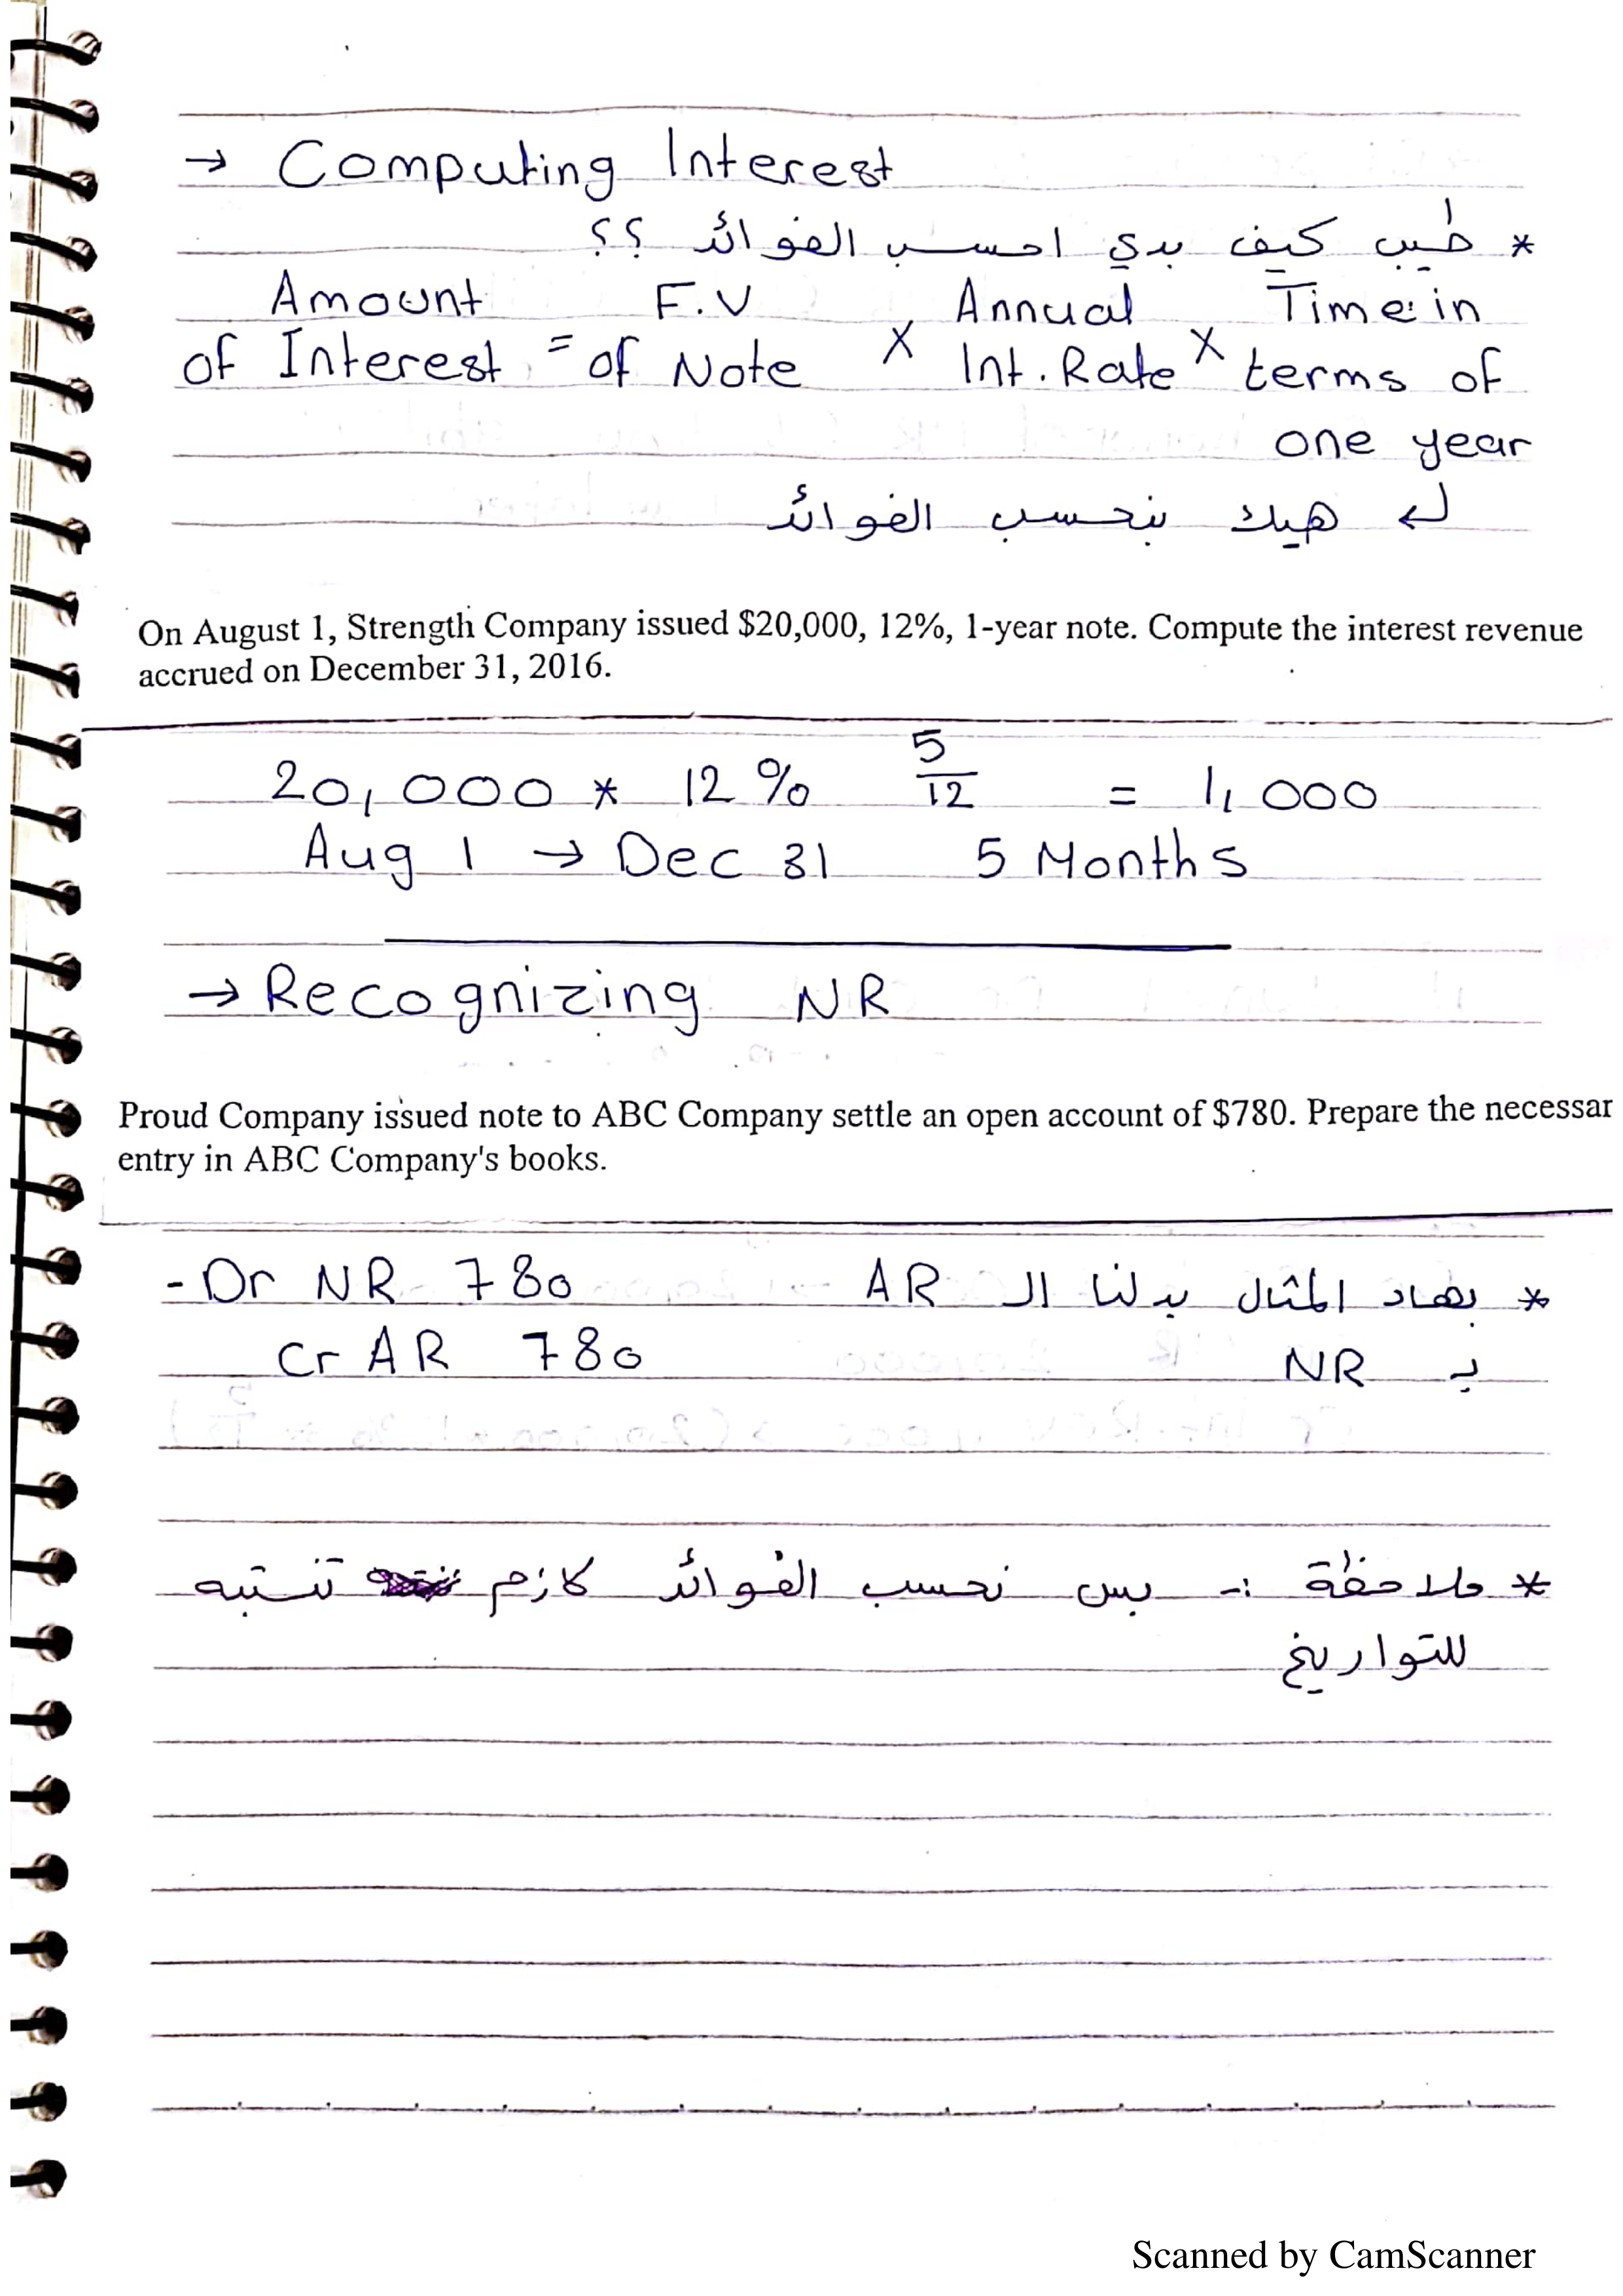 → Computing Interest
* طيب كيف بدي احسب الفوائد ؟؟
Amount F.V Annual Time in
of Interest = of Note X Int. Rate X terms of
one year
↵ هيك بنحسب الفوائد
On August 1, Strength Company issued $20,000, 12%, 1-year note. Compute the interest revenue
accrued on December 31, 2016.
20,000 * 12% 5/12 = 1,000
Aug 1 → Dec 31 5 Months
→ Recognizing NR
Proud Company issued note to ABC Company settle an open account of $780. Prepare the necessar
entry in ABC Company's books.
- Dr NR 780 * بهاد المثال بدلنا ال AR
Cr AR 780 ب NR
* ملاحظة :- بس نحسب الفوائد لازم ننتبه
للتواريخ
Scanned by CamScanner